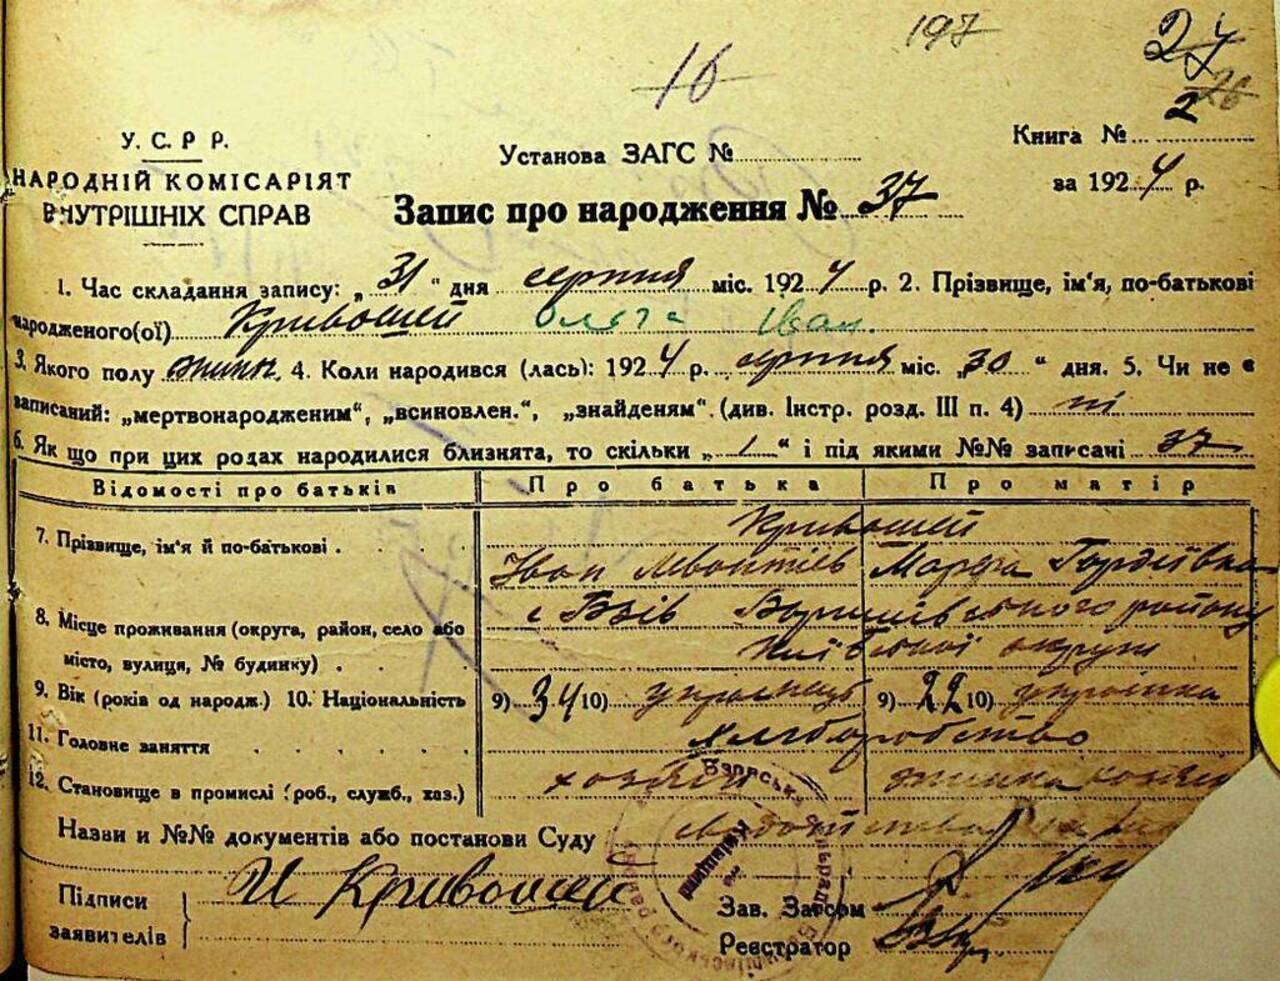 197
27
16
26
У. С. Р Р.
НАРОДНІЙ КОМІСАРІЯТ
ВНУТРІШНІХ СПРАВ
Установа ЗАГС №
Книга № 2
за 1924 р.
Запис про народження № 37
1. Час складання запису: „ 31 “ дня серпня міс. 1924 р. 2. Прізвище, ім'я, по-батькові
народженого(ої) Кривошей Ольга Іван.
3. Якого полу жіноч. 4. Коли народився (лась): 1924 р. серпня міс. „ 30 “ дня. 5. Чи не є
записаний: „мертвонародженим“, „всиновлен.“, „знайденям“. (див. Інстр. розд. III п. 4) ні
6. Як що при цих родах народилися близнята, то скільки „ 1 “ і під якими №№ записані 37
Відомості про батьків Про батька Про матір
7. Прізвище, ім'я й по-батькові . Кривошей
Іван Марфа Гордіївна
8. Місце проживання (округа, район, село або с Бзів району
місто, вулиця, № будинку) . . Київської округи
9. Вік (років од народж.) 10. Національність 9) 34 10) українець 9) 22 10) українка
11. Головне заняття . . . . . . Хліборобство
12. Становище в промислі (роб., служб., хаз.) хозяїн жінка
Назви и №№ документів або постанови Суду
Підписи
заявителів
И Кривошей
Зав. Загсом
Реєстратор